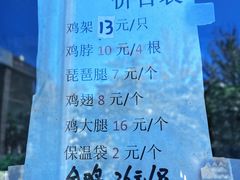 价目表
鸡架 13元/只
鸡脖 10 元/4 根
琵琶腿 7 元/个
鸡翅 8 元/个
鸡大腿 16 元/个
保温袋 2 元/个
全鸡 26元/只